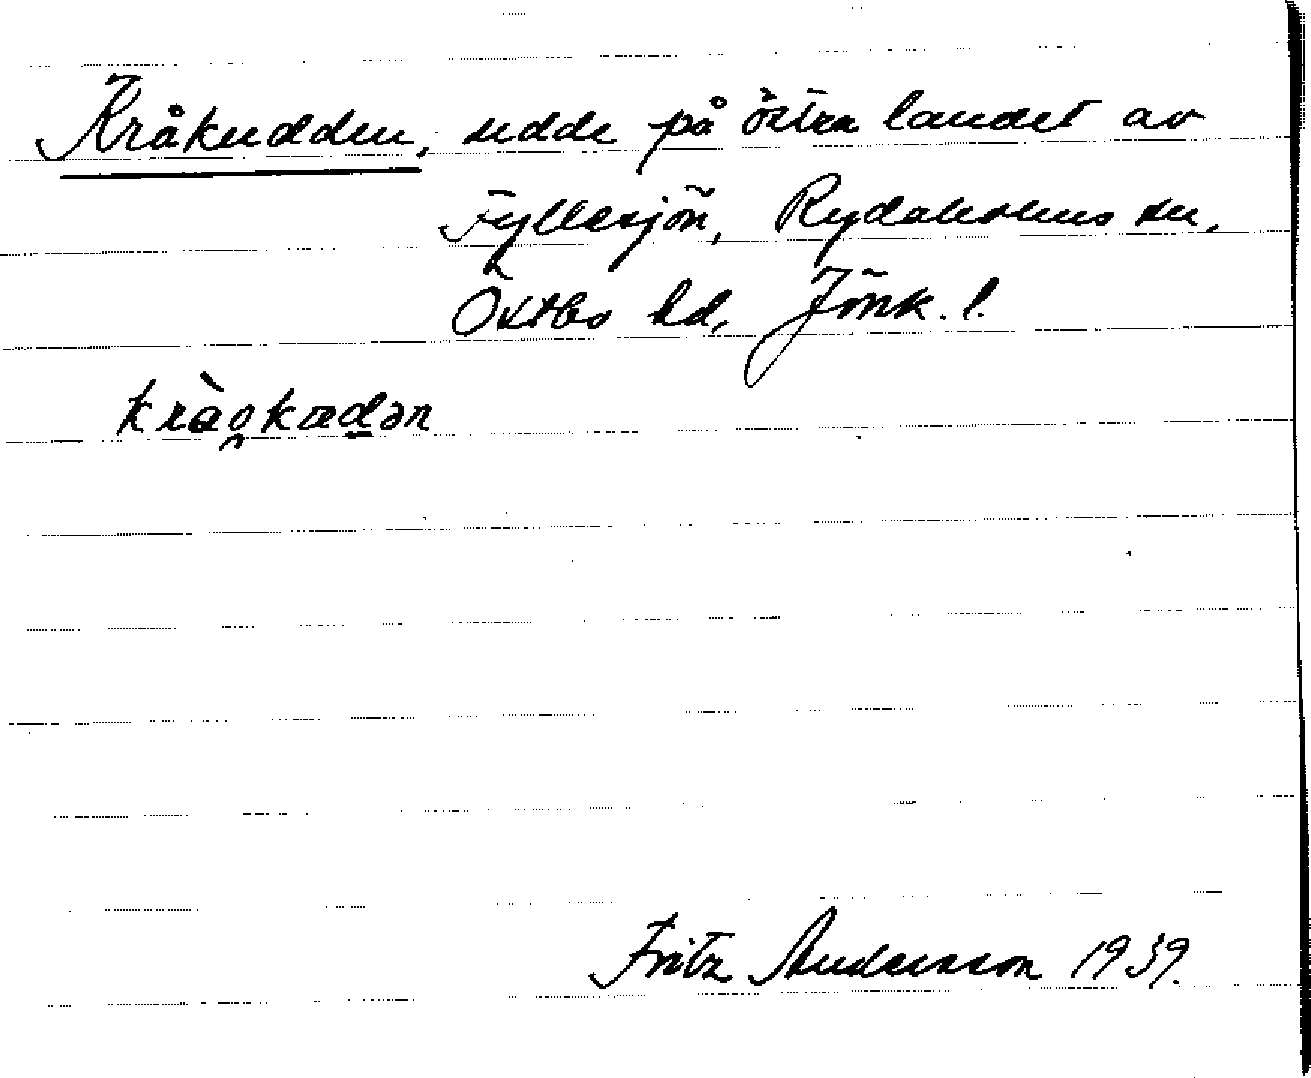 Kråkudden, udde på östra landet av
Fyllesjön, Rydaholms sn,
Östbo hd, Jönk. l.
krào̯kædən
Fritz Andersson 1939.